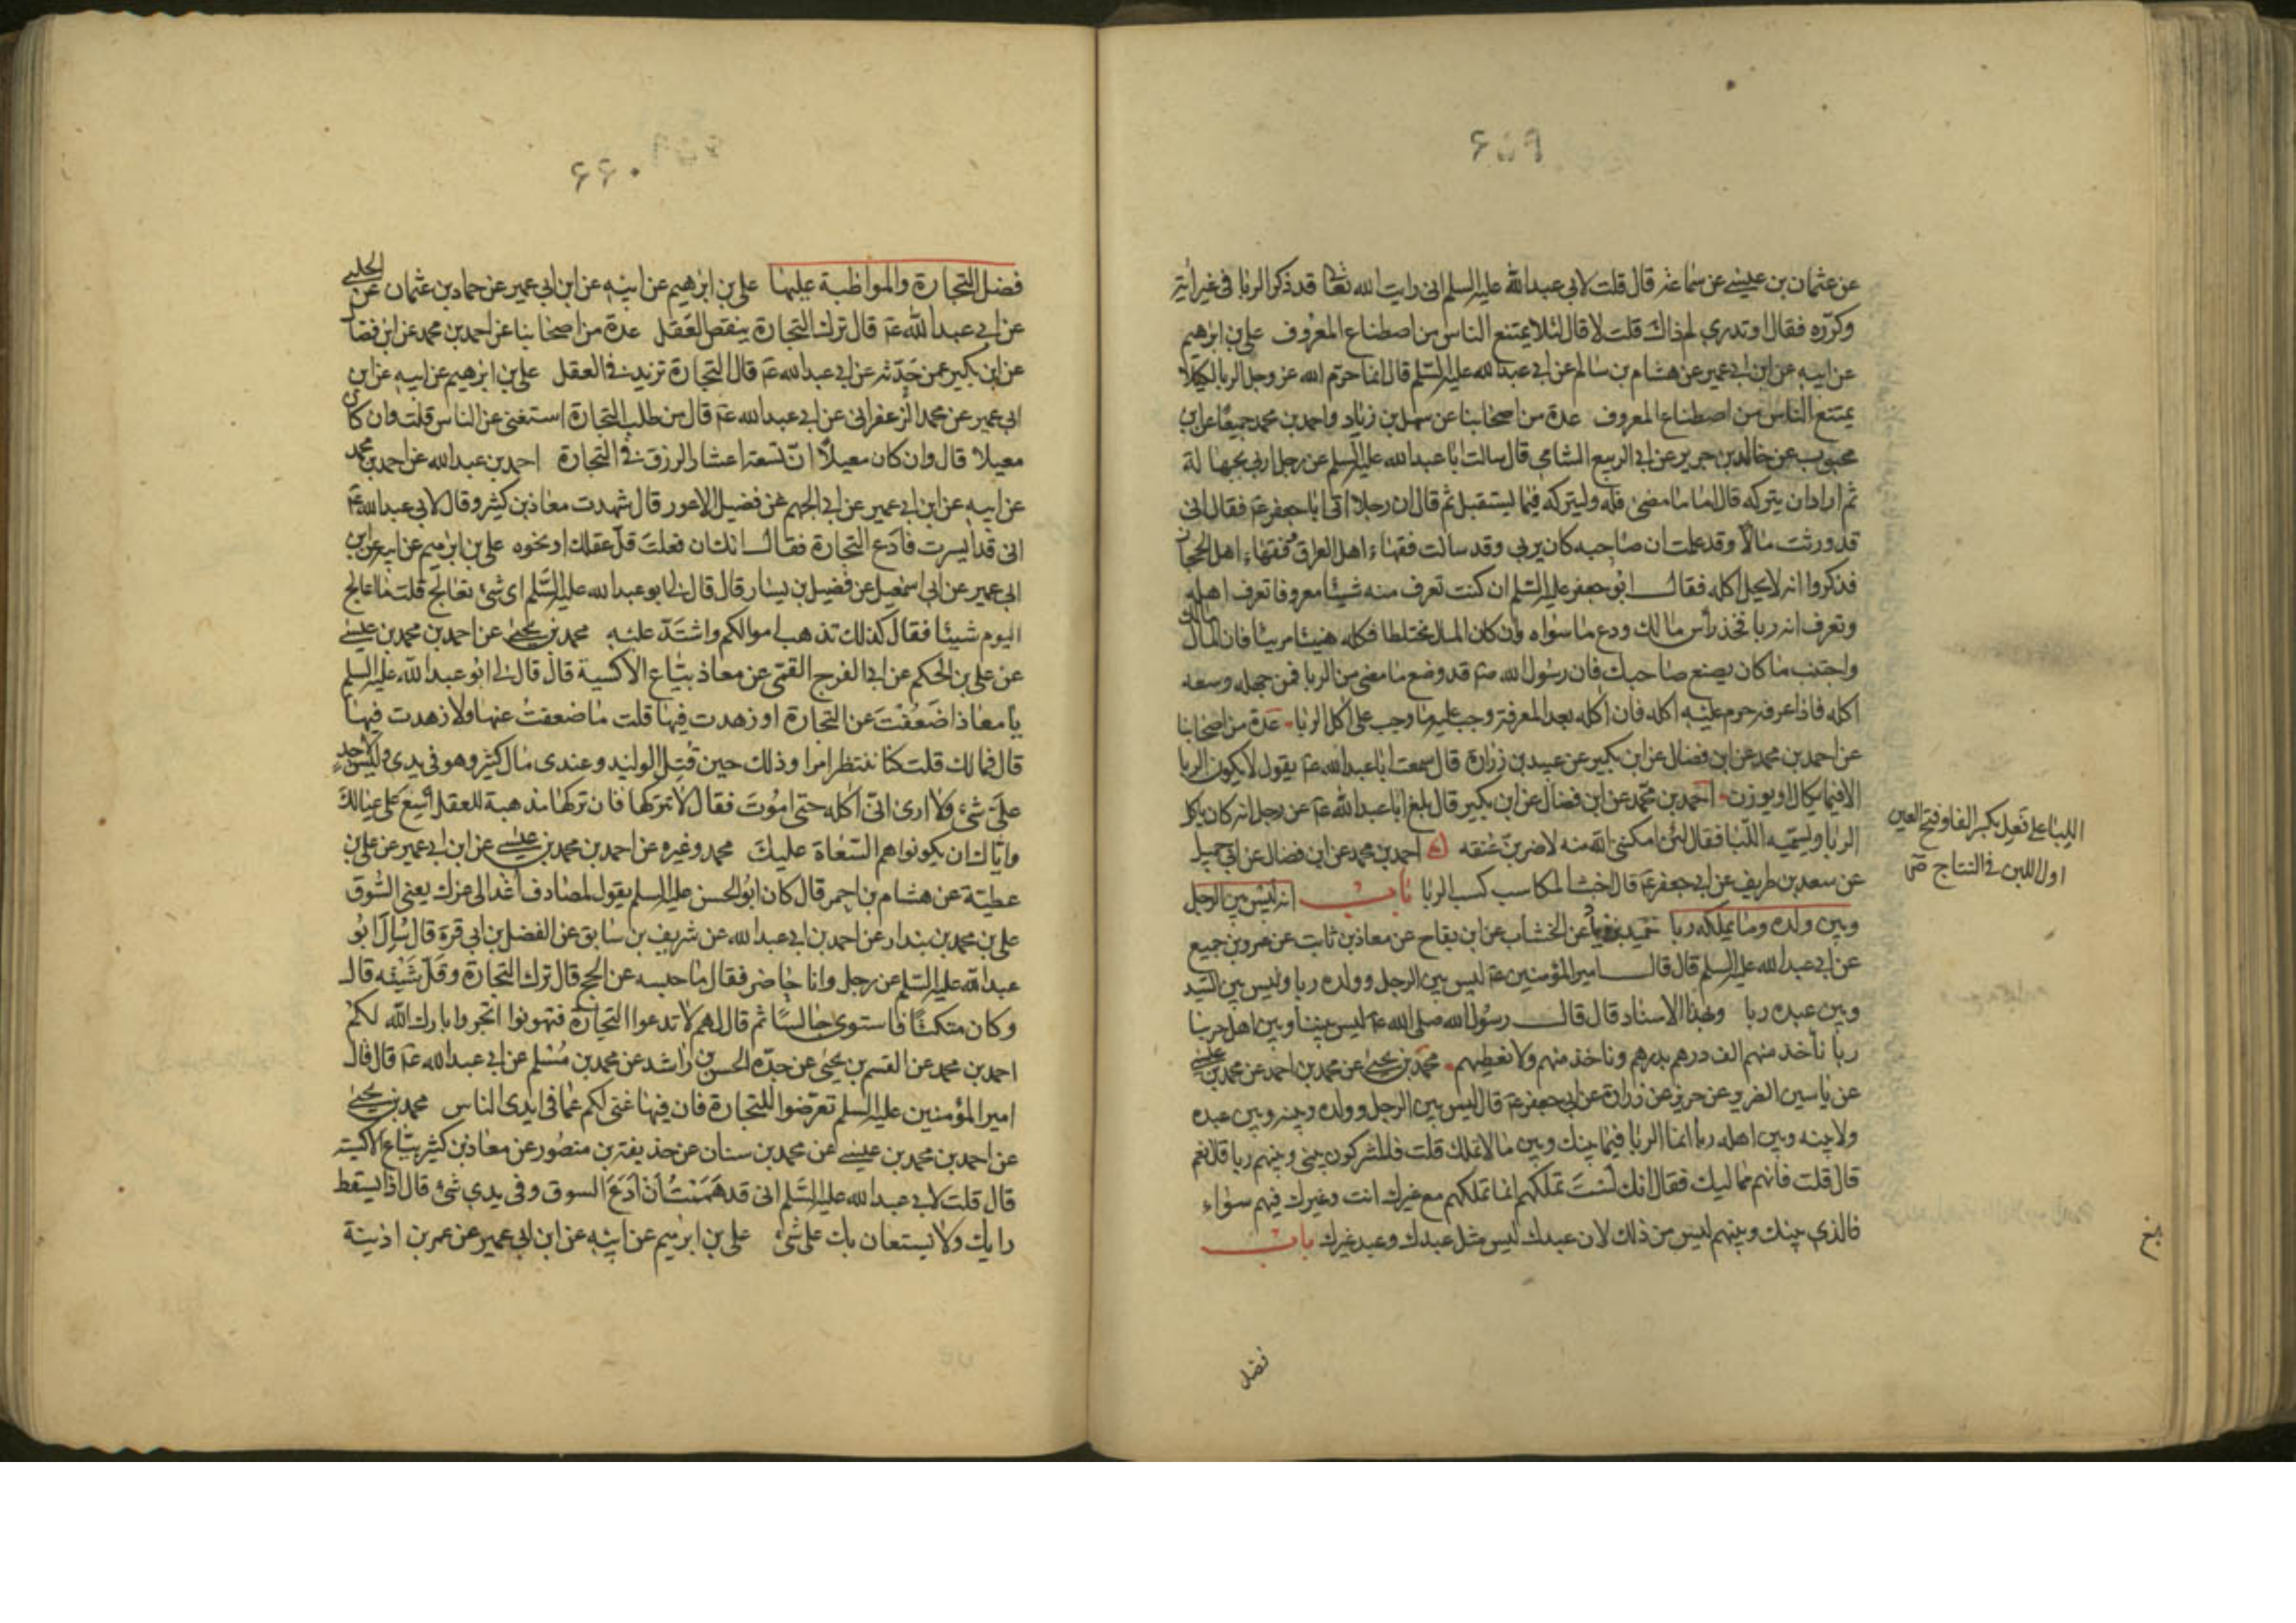 ۶۵۹
عن عثمان بن عيسى عن سماعة قال قلت لابى عبدالله عليه السلم انى رايت الله تعالى قد ذكر الربا فى غير اية
وكرره فقال او تدرى لم ذاك قلت لا قال لئلا يمتنع الناس من اصطناع المعروف على بن ابرهيم
عن ابيه عن ابن ابى عمير عن هشام بن سالم عن ابى عبدالله عليه السلم قال انما حرم الله عز وجل الربا لكيلا
يمتنع الناس من اصطناع المعروف عدة من اصحابنا عن سهل بن زياد واحمد بن محمد جميعا عن ابن
محبوب عن خالد بن جرير عن ابى الربيع الشامى قال سالت ابا عبدالله عليه السلم عن رجل اربى بجهالة
ثم اراد ان يتركه قال اما ما مضى فله وليتركه فيما يستقبل ثم قال ان رجلا اتى ابا جعفر ع فقال انى
قد ورثت مالا وقد علمت ان صاحبه كان يربى وقد سالت فقهاء اهل العراق وفقهاء اهل الحجاز
فذكروا انه لا يحل اكله فقال ابو جعفر عليه السلم ان كنت تعرف منه شيئا معروفا تعرف اهله
وتعرف انه ربا فخذ راس مالك ودع ما سواه وان كان المال مختلطا فكله هنيئا مريئا فان المال مالك
واجتنب ما كان يصنع صاحبك فان رسول الله ص قد وضع ما مضى من الربا فمن جهله وسعه
اكله فاذا عرفه حرم عليه اكله فان اكله بعد المعرفة وجب عليه ما وجب على اكل الربا عدة من اصحابنا
عن احمد بن محمد عن ابن فضال عن ابن بكير عن عبيد بن زرارة قال سمعت ابا عبدالله ع يقول لا يكون الربا
الا فيما يكال او يوزن احمد بن محمد عن ابن فضال عن ابن بكير قال بلغ ابا عبدالله ع عن رجل انه كان ياكل
الربا ويسميه اللبا فقال لئن امكننى الله منه لاضربن عنقه احمد بن محمد عن ابن فضال عن ابى جميلة
عن سعد بن طريف عن ابى جعفر ع قال اخبث المكاسب كسب الربا باب انه ليس بين الرجل
وبين ولده وما يملكه ربا حميد بن زياد عن الخشاب عن ابن بقاح عن معاذ بن ثابت عن عمرو بن جميع
عن ابى عبدالله عليه السلم قال قال امير المؤمنين ع ليس بين الرجل وولده ربا وليس بين السيد
وبين عبده ربا وبهذا الاسناد قال قال رسول الله صلى الله ع ليس بيننا وبين اهل حربنا
ربا ناخذ منهم الف درهم بدرهم وناخذ منهم ولا نعطيهم محمد بن يحيى عن محمد بن احمد عن محمد بن عيسى
عن ياسين الضرير عن حريز عن زرارة عن ابى جعفر ع قال ليس بين الرجل وولده وبينه وبين عبده
ولا بينه وبين اهله ربا انما الربا فيما بينك وبين ما لا تملك قلت فالمشركون بينى وبينهم ربا قال نعم
قال قلت فانهم مماليك فقال انك لست تملكهم انما تملكهم مع غيرك انت وغيرك فيهم سواء
فالذى بينك وبينهم ليس من ذلك لان عبدك ليس مثل عبدك وعبد غيرك باب
اللبا على فعل بكسر الفاء وفتح العين
اول اللبن فى النتاج ص
فضل
۶۶۰
فضل التجارة والمواظبة عليها على بن ابرهيم عن ابيه عن ابن ابى عمير عن حماد بن عثمان عن الحلبى
عن ابى عبدالله ع قال ترك التجارة ينقص العقل عدة من اصحابنا عن احمد بن محمد عن ابن فضال
عن ابن بكير عمن حدثه عن ابى عبدالله ع قال التجارة تزيد فى العقل على بن ابرهيم عن ابيه عن ابن
ابى عمير عن محمد الزعفرانى عن ابى عبدالله ع قال من طلب التجارة استغنى عن الناس قلت وان كان
معيلا قال وان كان معيلا ان تسعة اعشار الرزق فى التجارة احمد بن عبدالله عن احمد بن محمد
عن ابيه عن ابن ابى عمير عن ابى الجهم عن فضيل الاعور قال شهدت معاذ بن كثير وقال لابى عبدالله ع
انى قد ايسرت فادع التجارة فقال انك ان فعلت قل عقلك او نحوه على بن ابرهيم عن ابيه عن ابن
ابى عمير عن ابى اسمعيل عن فضيل بن يسار قال قال لى ابو عبدالله عليه السلم اى شئ تعالج قلت ما اعالج
اليوم شيئا فقال كذلك تذهب اموالكم واشتد عليه محمد بن يحيى عن احمد بن محمد بن عيسى
عن على بن الحكم عن ابى الفرج القمى عن معاذ بياع الاكسية قال قال لى ابو عبدالله عليه السلم
يا معاذ اضعفت عن التجارة او زهدت فيها قلت ما ضعفت عنها ولا زهدت فيها
قال فما لك قلت كنا ننتظر امرا وذلك حين قتل الوليد وعندى مال كثير وهو فى يدى وليس لاحد
على شئ ولا ارى انى آكله حتى اموت فقال لا تتركها فان تركها مذهبة للعقل اسع على عيالك
واياك ان يكونوا هم السعاة عليك محمد وغيره عن احمد بن محمد بن عيسى عن ابن ابى عمير عن على بن
عطية عن هشام بن احمر قال كان ابو الحسن عليه السلم يقول لمصادف اغد الى عزك يعنى السوق
على بن محمد بن بندار عن احمد بن ابى عبدالله عن شريف بن سابق عن الفضل بن ابى قرة قال سال ابو
عبدالله عليه السلم عن رجل وانا حاضر فقال ما حبسه عن الحج قال ترك التجارة وقل شيئه قال
وكان متكئا فاستوى جالسا ثم قال لهم لا تدعوا التجارة فتهونوا اتجروا بارك الله لكم
احمد بن محمد عن القسم بن يحيى عن جده الحسن بن راشد عن محمد بن مسلم عن ابى عبدالله ع قال قال
امير المؤمنين عليه السلم تعرضوا للتجارة فان فيها غنى لكم عما فى ايدى الناس محمد بن يحيى
عن احمد بن محمد بن عيسى عن محمد بن سنان عن حذيفة بن منصور عن معاذ بن كثير بياع الاكسية
قال قلت لابى عبدالله عليه السلم انى قد هممت ان ادع السوق وفى يدى شئ قال اذا يسقط
رايك ولا يستعان بك على شئ على بن ابرهيم عن ابيه عن ابن ابى عمير عن عمر بن اذينة